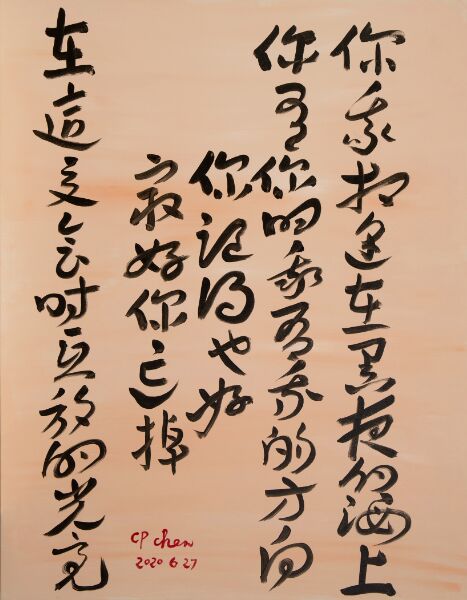 你我相逢在黑夜的海上
你有你的我有我的方向
你記得也好
最好你忘掉
在這交會時互放的光亮
CP chen
2020 6 27